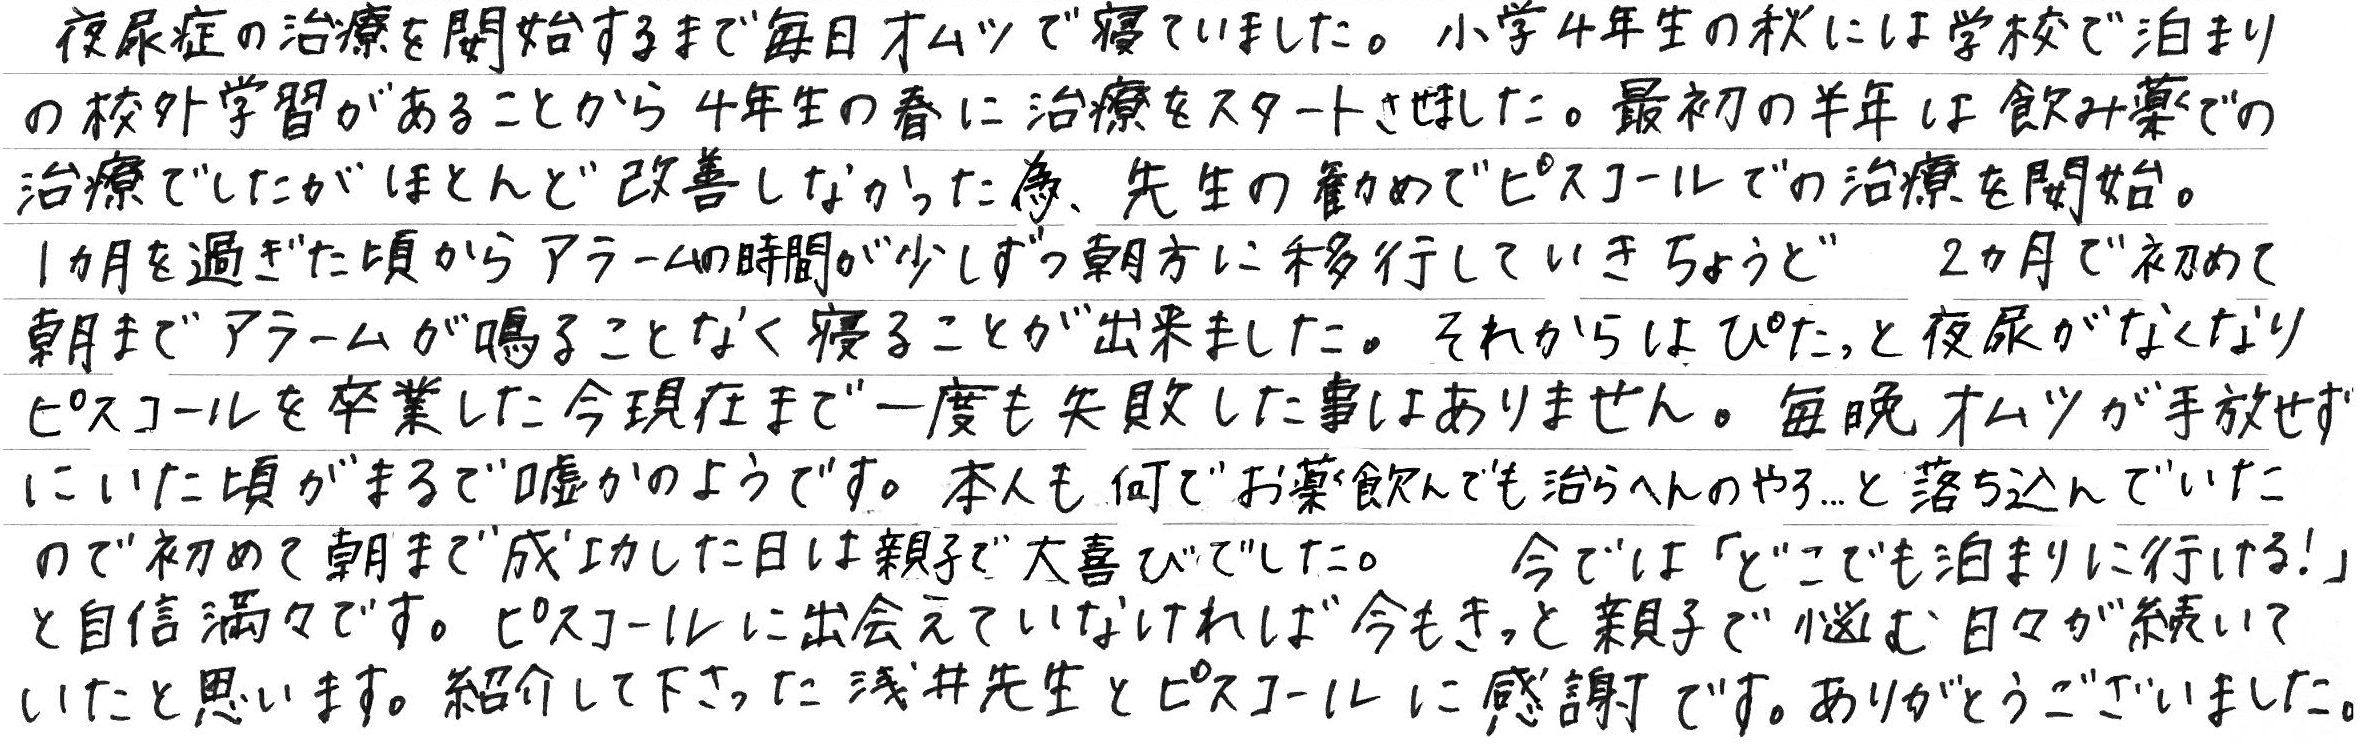 夜尿症の治療を開始するまで毎日オムツで寝ていました。小学4年生の秋には学校で泊まり
の校外学習があることから4年生の春に治療をスタートさせました。最初の半年は飲み薬での
治療でしたがほとんど改善しなかった為、先生の勧めでピスコールでの治療を開始。
1カ月を過ぎた頃からアラームの時間が少しずつ朝方に移行していきちょうど 2カ月で初めて
朝までアラームが鳴ることなく寝ることが出来ました。それからはぴたっと夜尿がなくなり
ピスコールを卒業した今現在まで一度も失敗した事はありません。毎晩オムツが手放せず
にいた頃がまるで嘘かのようです。本人も何でお薬飲んでも治らへんのやろ…と落ち込んでいた
ので初めて朝まで成功した日は親子で大喜びでした。 今では「どこでも泊まりに行ける!」
と自信満々です。ピスコールに出会えていなければ今もきっと親子で悩む日々が続いて
いたと思います。紹介して下さった浅井先生とピスコールに感謝です。ありがとうございました。